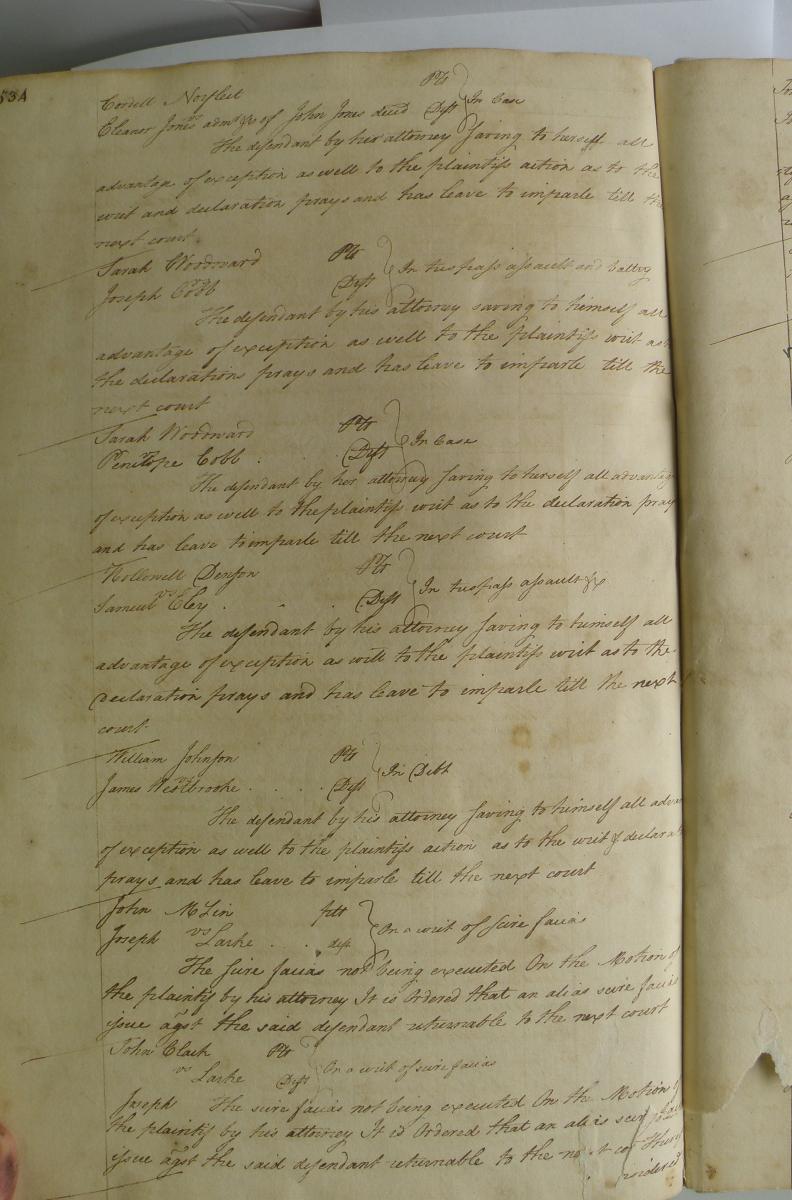 53A
Cordell Norfleet Plt
vs In Case
Eleanor Jones adm &c of John Jones decd Deft
The defendant by her attorney saving to herself all
advantage of exception as well to the plaintifs action as to the
writ and declaration prays and has leave to imparle till the
next court
Sarah Woodward Plt
vs In trespass assault and battey
Joseph Cobb Deft
The defendant by his attorney saving to himself all
advantage of exception as well to the plaintifs writ as to
the declarations prays and has leave to imparle till the
next court
Sarah Woodward Plt
vs In Case
Penelope Cobb . . Deft
The defendant by her attorney saving to herself all advantage
of exception as well to the plaintifs writ as to the declaration pray
and has leave to imparle till the next court
Hollowell Denson Plt
vs In trespass assault &c
Samuel Eley . . . Deft
The defendant by his attorney saving to himself all
advantage of exception as well to the plaintifs writ as to the
declaration prays and has leave to imparle till the next
court
William Johnson Plt
vs In Debt
James Westbrooke . . . . Deft
The defendant by his attorney saving to himself all advan
of exception as well to the plaintifs action as to the writ & declarat
prays and has leave to imparle till the next court
John McLin pltt
vs On a writ of scire facias
Joseph Larke . . . def
The scire facias not being executed On the Motion of
the plaintif by his attorney It is Ordered that an alias scire facias
issue agst the said defendant returnable to the next court
John Clack Plt
vs On a writ of scire facias
Joseph Larke Deft
The scire facias not being executed On the Motion of
the plaintif by his attorney It is Ordered that an alias scire facias
issue agst the said defendant returnable to the next